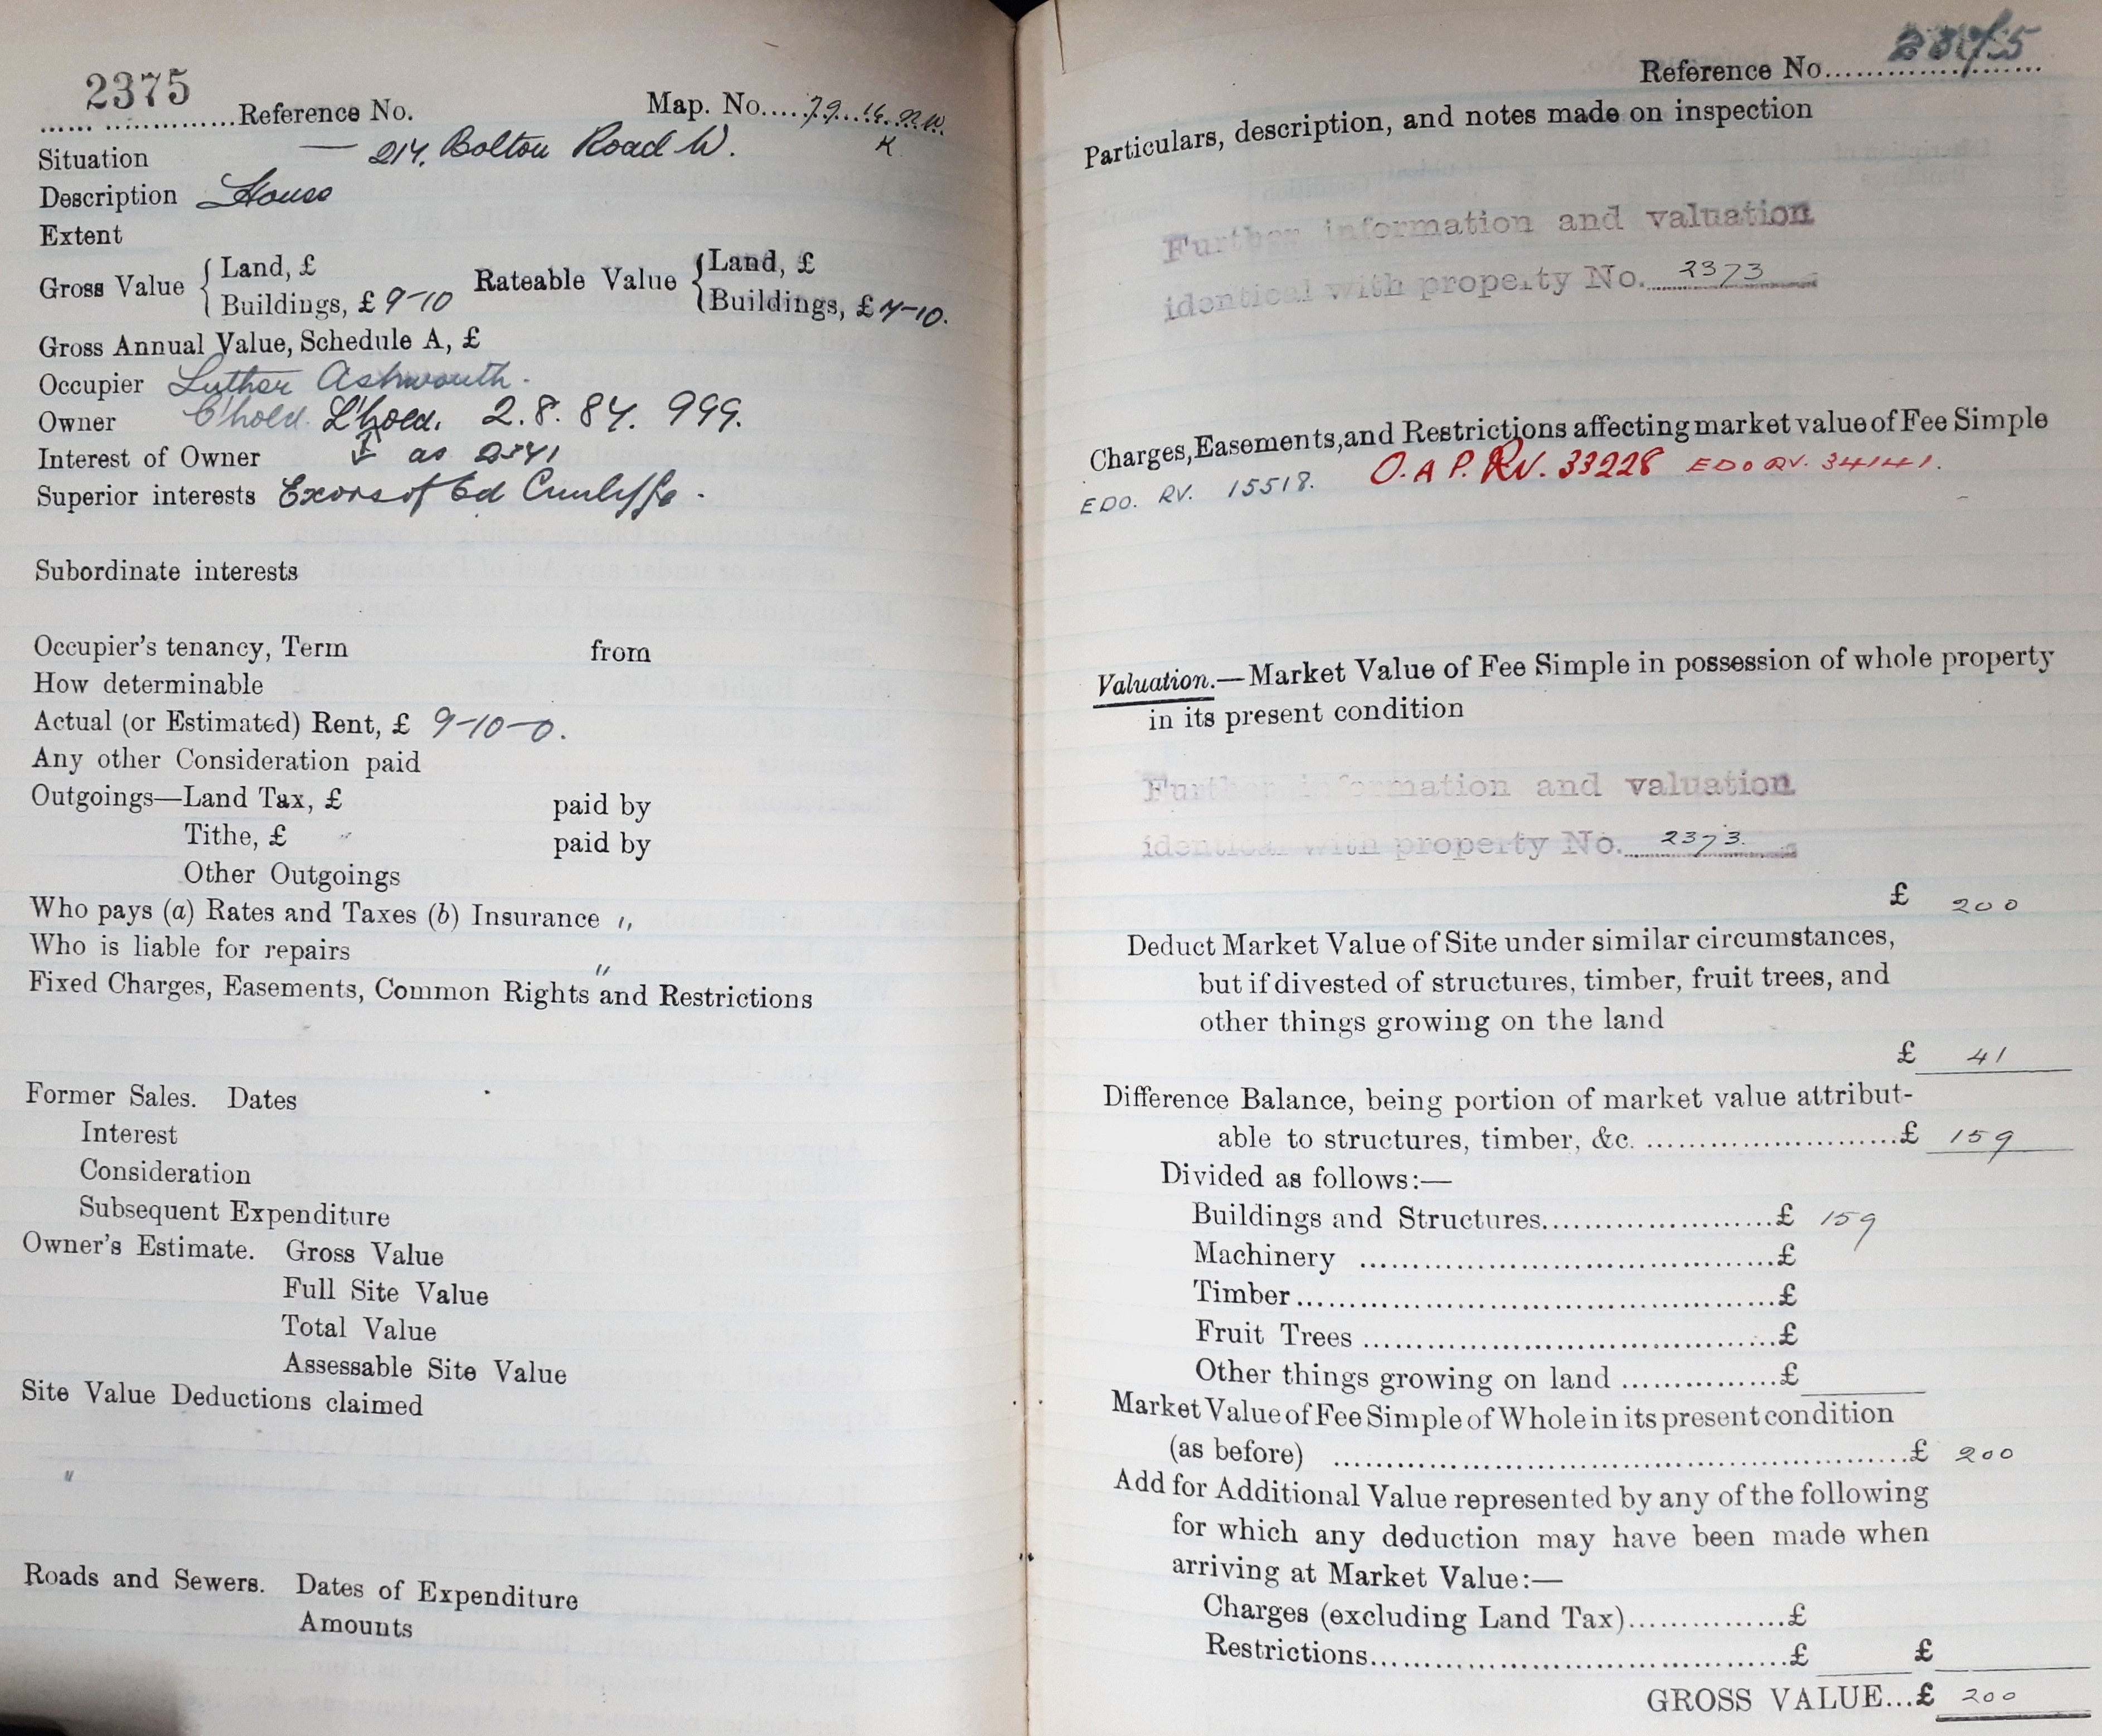 2375
Reference No. Map. No. 79.16.
K
Situation — 214, Bolton Road W.
Description House
Extent
Gross Value { Land, £
Buildings, £ 9-10
Rateable Value { Land, £
Buildings, £ 7-10.
Gross Annual Value, Schedule A, £
Occupier Luther Ashworth.
Owner C'hold. L'hold. 2. 8. 84. 999.
Interest of Owner as 2341
Superior interests Exors of Ed Cunliffe.
Subordinate interests
Occupier's tenancy, Term from
How determinable
Actual (or Estimated) Rent, £ 9-10-0.
Any other Consideration paid
Outgoings—Land Tax, £ paid by
Tithe, £ paid by
Other Outgoings
Who pays (a) Rates and Taxes (b) Insurance "
Who is liable for repairs "
Fixed Charges, Easements, Common Rights and Restrictions
Former Sales. Dates
Interest
Consideration
Subsequent Expenditure
Owner's Estimate. Gross Value
Full Site Value
Total Value
Assessable Site Value
Site Value Deductions claimed
"
Roads and Sewers. Dates of Expenditure
Amounts
Reference No.
Particulars, description, and notes made on inspection
Further information and valuation
identical with property No. 2373
Charges, Easements, and Restrictions affecting market value of Fee Simple
EDO. RV. 15518. O.A P. RV. 33228 EDO RV. 34141.
Valuation.—Market Value of Fee Simple in possession of whole property
in its present condition
Further information and valuation
identical with property No. 2373.
£ 200
Deduct Market Value of Site under similar circumstances,
but if divested of structures, timber, fruit trees, and
other things growing on the land
£ 41
Difference Balance, being portion of market value attribut-
able to structures, timber, &c. £ 159
Divided as follows:—
Buildings and Structures £ 159
Machinery £
Timber £
Fruit Trees £
Other things growing on land £
Market Value of Fee Simple of Whole in its present condition
(as before) £ 200
Add for Additional Value represented by any of the following
for which any deduction may have been made when
arriving at Market Value:—
Charges (excluding Land Tax) £
Restrictions £ £
GROSS VALUE...£ 200